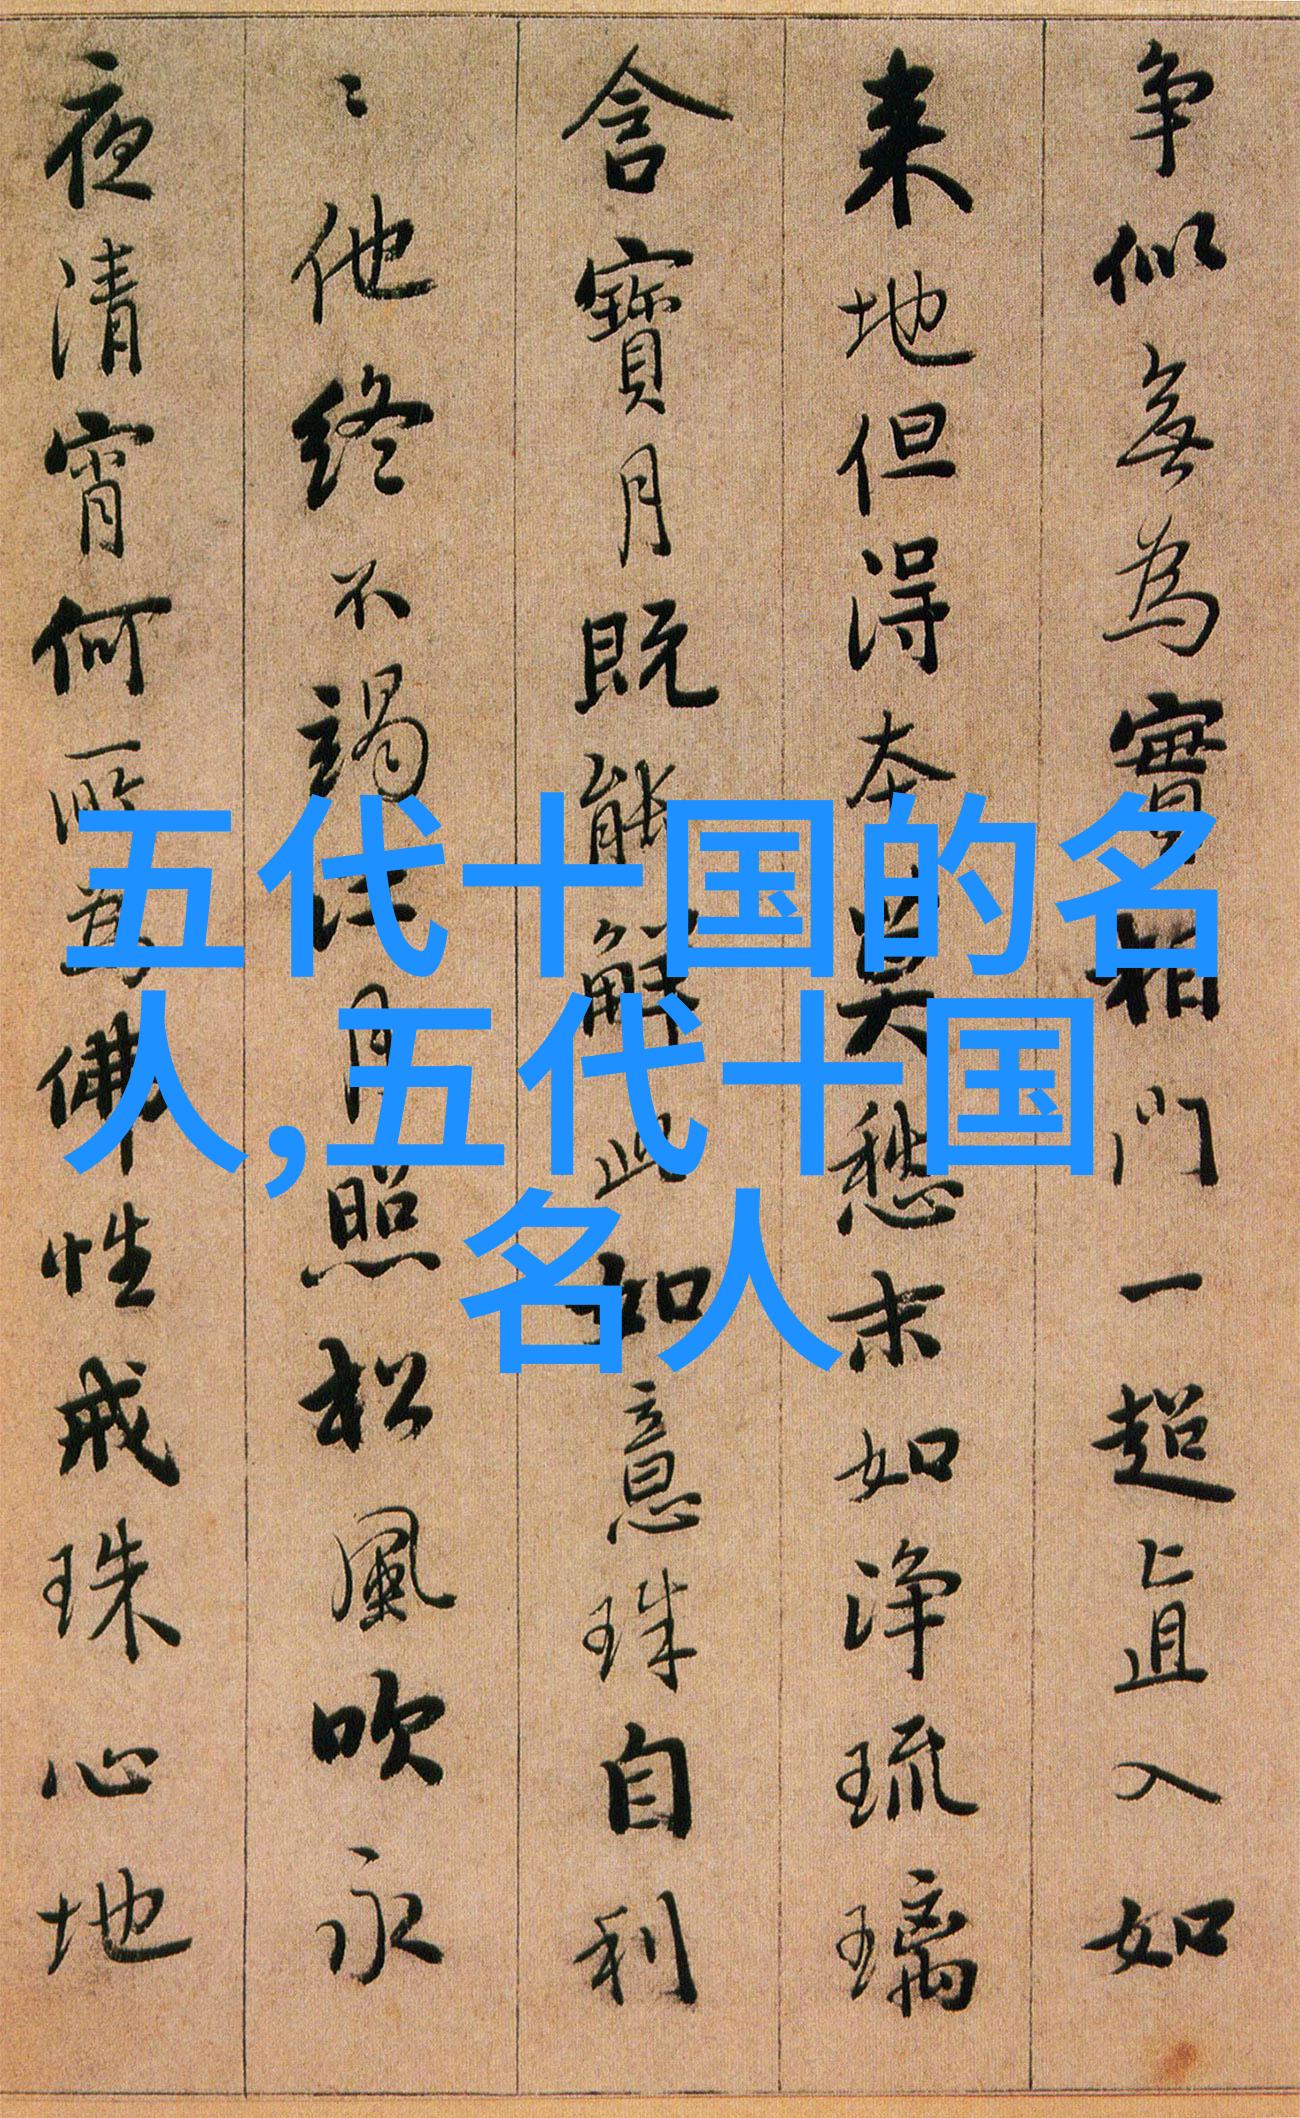 争似無為實相門一超直入如
来地但得本莫愁末如淨琉璃
含寶月既能解此如意珠自利
〻他終不竭江月照松風吹永
夜清宵何所為佛性戒珠心地
五代十国的名
人,五代十国
名人